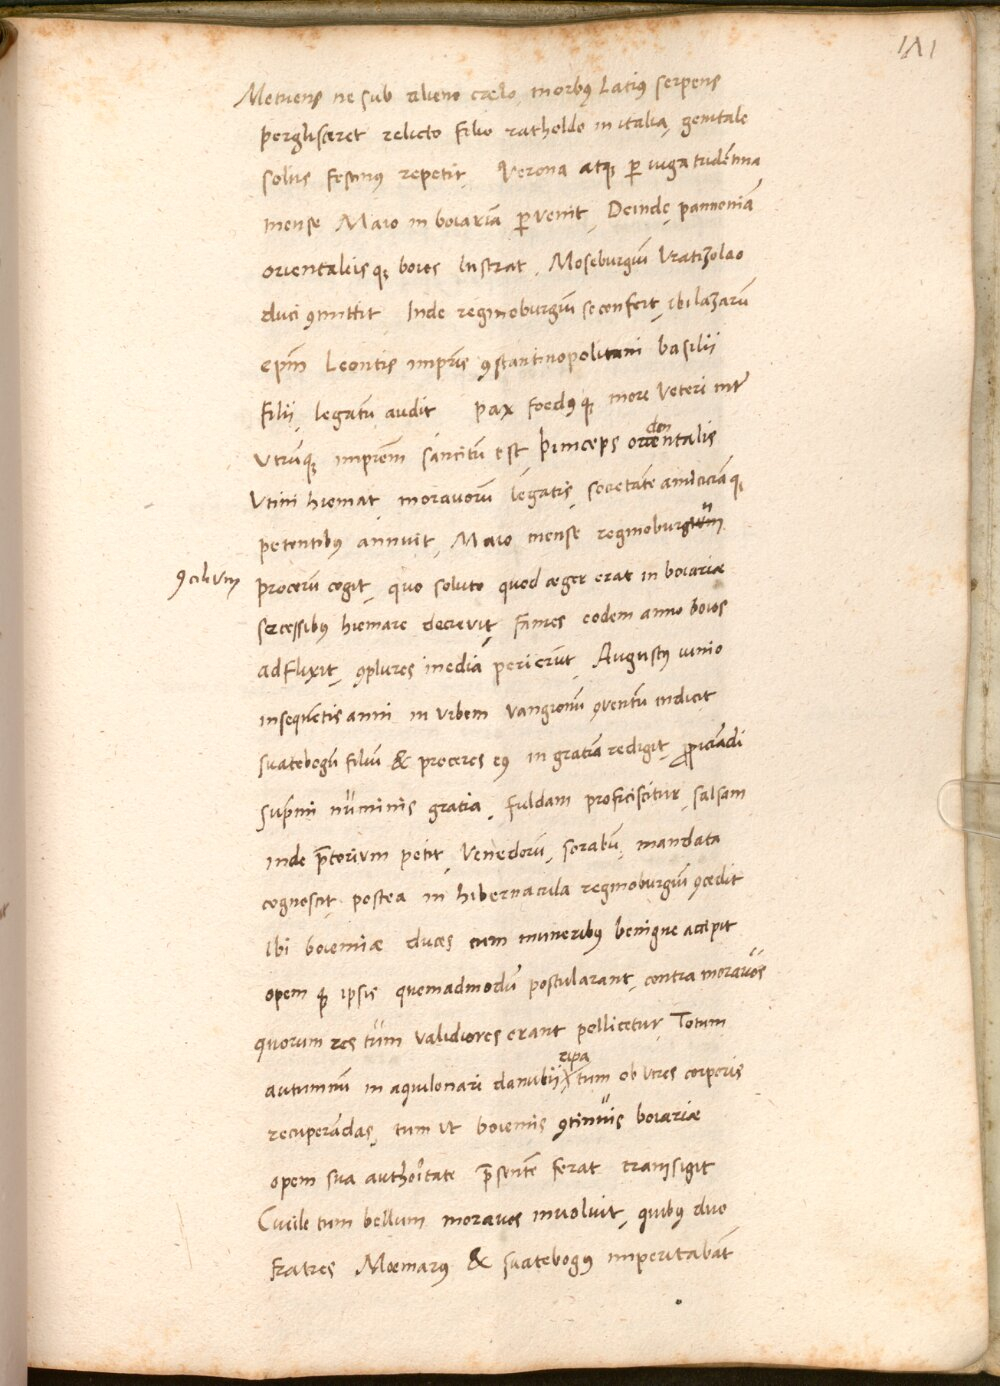 1Λ1
Metuens ne sub alieno cælo, morbꝰ Latiꝰ serpens
perglisceret relicto filio ratholdo in italia, genitale
solus festinꝰ repetit, Verona atqꝫ ꝑ iuga tudẽtina
mense Maio in boiariã ꝑvenit, Deinde, pannoniã
orientaleisqꝫ boios lustrat, Moseburgiũ Vratizolao
duci ꝯmittit, Inde reginoburgiũ se confert, ibi lazarũ
epm̃ Leontis imp̃ris ꝯstantinopolitani basilii
filii, legatũ audit pax foedꝰqꝫ more Veteri int̃
Vtrũqꝫ imp̃rem̃ sancitũ est princeps orientalis
den
Vtini hiemat moravorũ legatis, societatẽ amiciciãqꝫ
petentibꝰ annuit, Maio mense reginoburgium
ꝯcilium
procerũ cogit, quo soluto quod æger erat in boiariæ
secessibꝰ hiemare decrevit, Fames eodem anno boios
adflixit, ꝯplures inedia perierũt, Augustꝰ iunio
insequẽtis anni in urbem Vangionũ ꝯventũ indicit
suatebogũ filiũ & proceres eꝰ in gratiã redigit, ꝓpiciãdi
sup̃mi numinis gratia, fuldam proficiscitur, salsam
inde p̃torium petit, Venedorũ, sorabũ, mandata
cognoscit, postea in hibernacula reginoburgiũ ꝯcedit
Ibi boiemiæ duces cum muneribꝰ benigne accipit
opem qꝫ ipsis quemadmodũ postularant, contra moravos
quorum res tum validiores erant pollicetur, Totum
autumnũ in aquilonari danubii tum ob vires corporis
ripa
recuperãdas, tum ut boiemis ꝯtinuis boiariæ
opem sua authoritate p̃sentẽ ferat transigit
Civile tum bellum moravos involvit, quibꝰ duo
fratres Moemarꝰ & suatebogꝰ imperitabãt